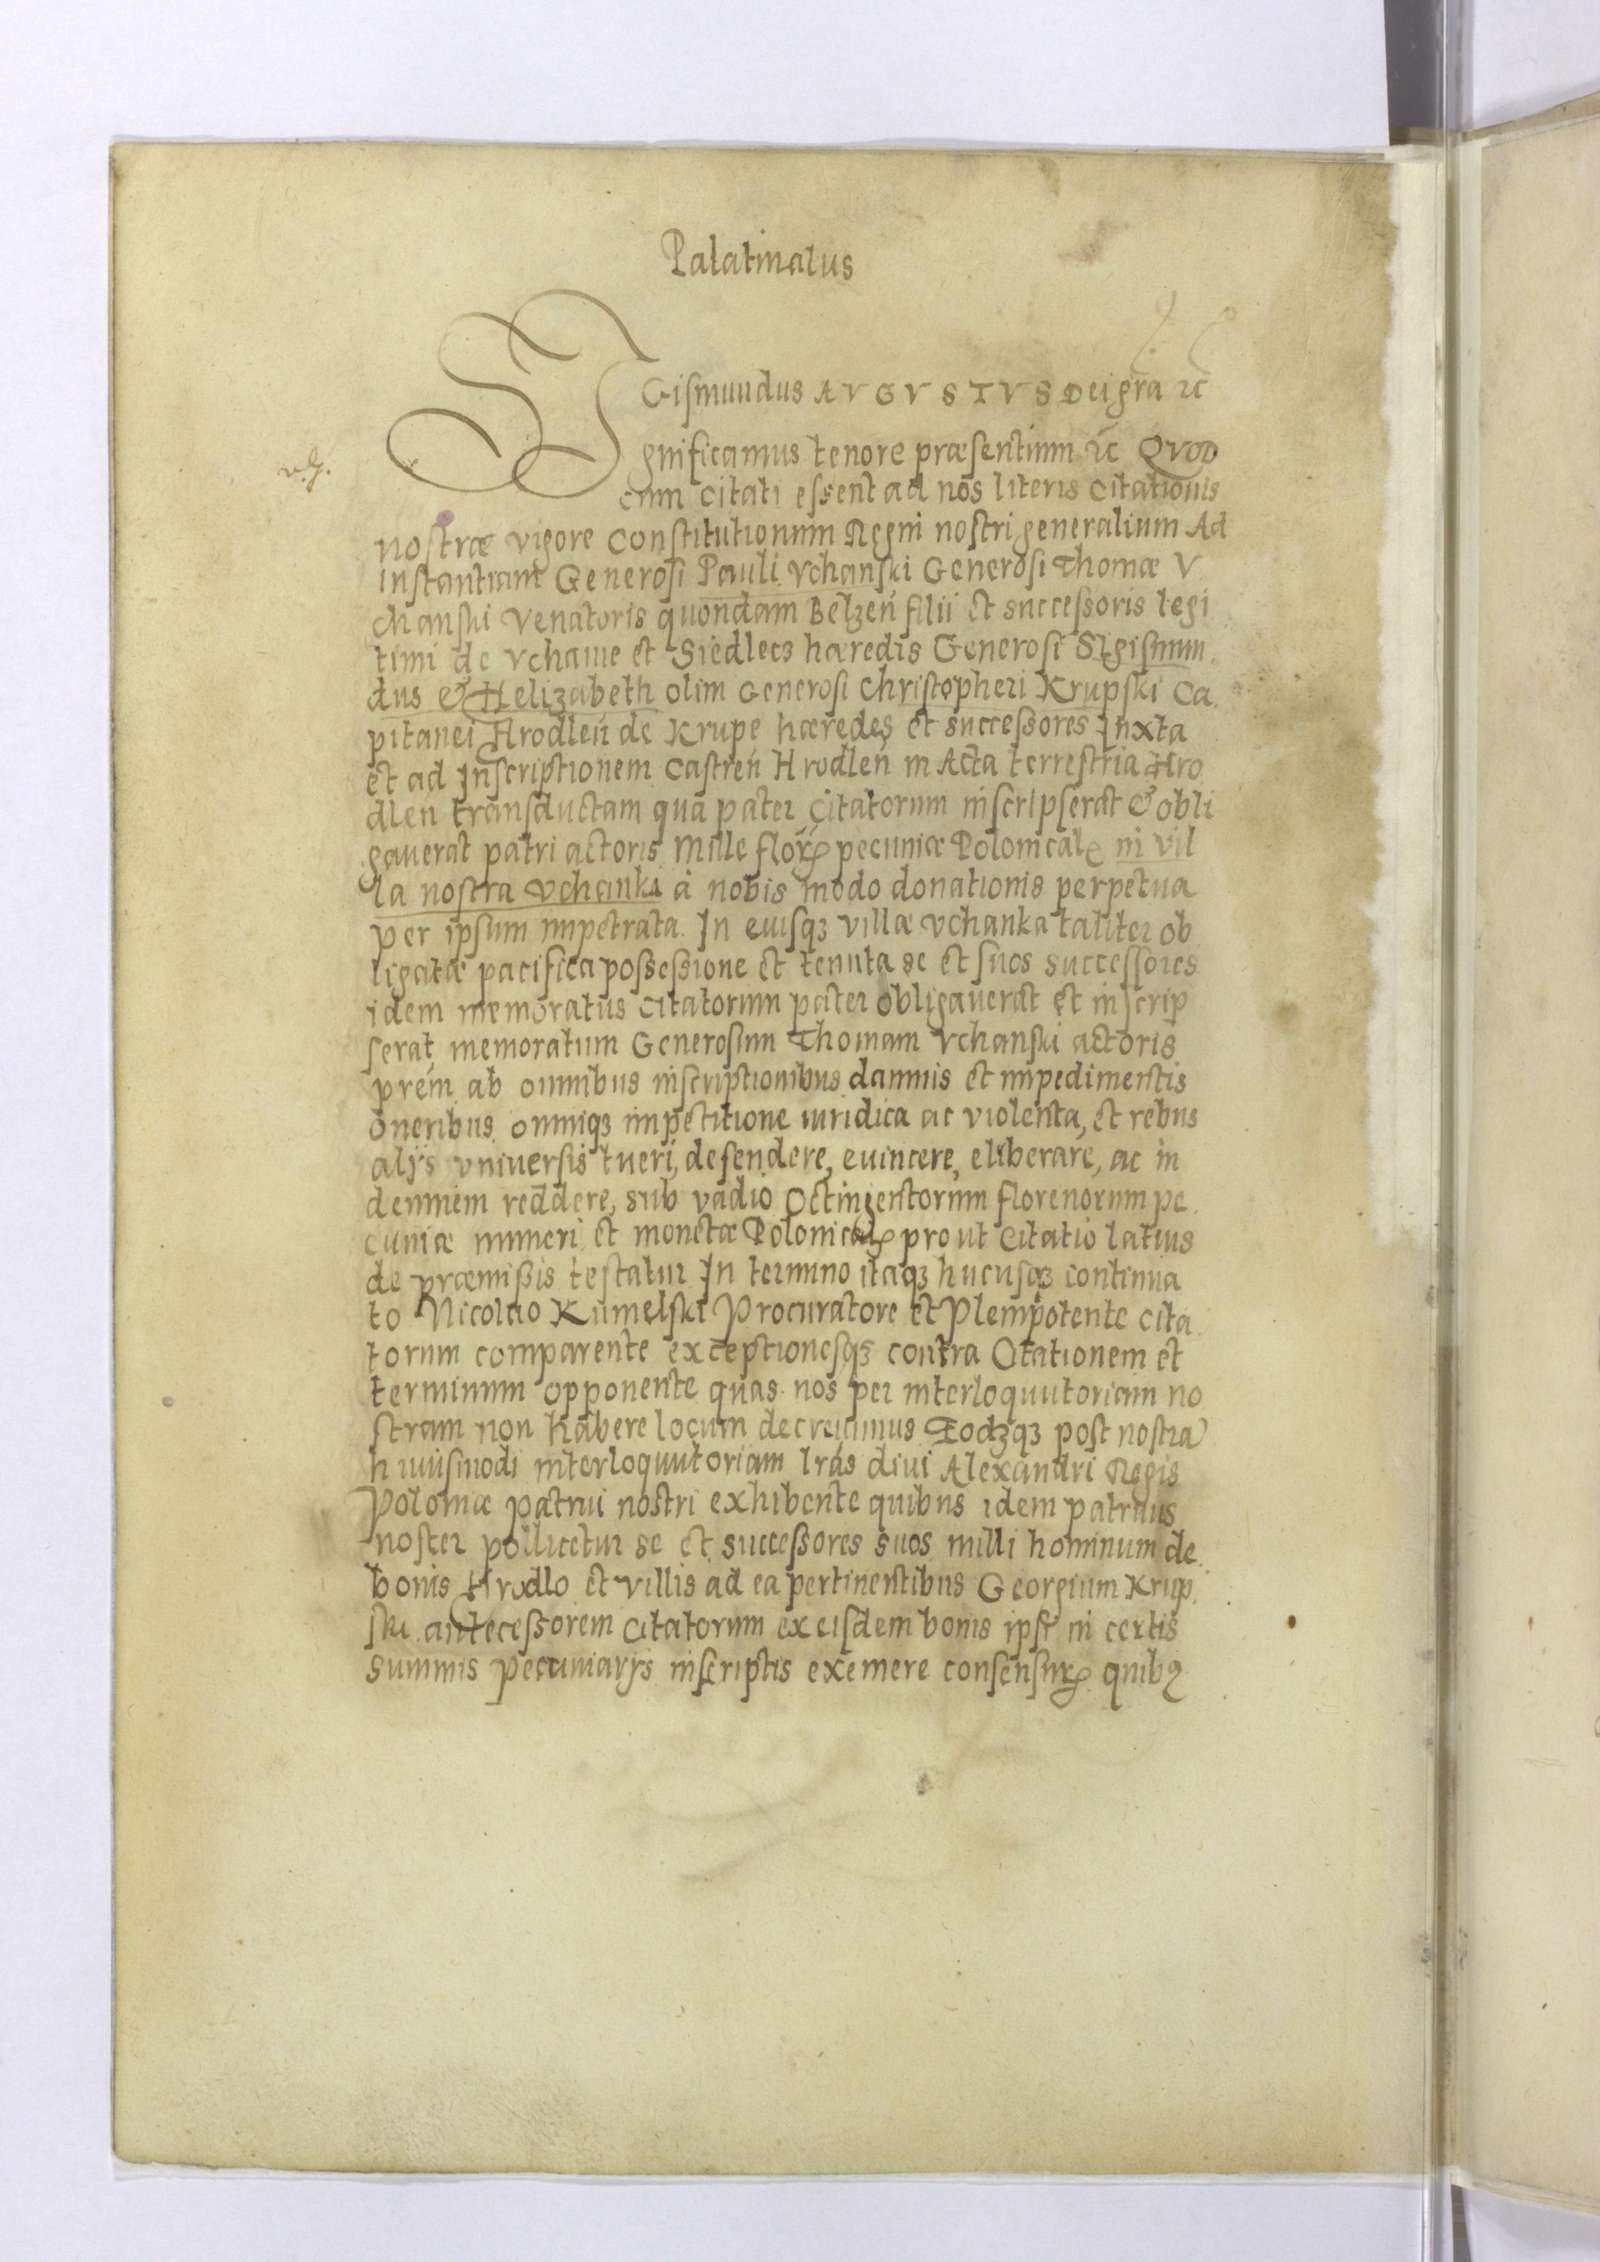 Palatinatus
SiGismundus AVGVSTVS Dei gra ꝛc
gnificamus tenore præsentium ꝛc QVOD
cum citati essent ad nos literis citationis
nostræ vigore constitutionum Regni nostri generalium Ad
instantiam Generosi Pauli Vchanski Generosi Thomæ V
chanski Venatoris quondam Belzeń filii et successoris legi
timi de Vchanie et Siedlecz hæredis Generosi Sigismun
dus & Helizabeth olim Generosi Christopheri Krupski Ca
pitanei Hrodleń de Krupe hæredes et successores Iuxta
et ad Inscriptionem Castreń Hrodleń in Acta terrestria Hro
dleń transductam qua pater Citatorum inscripserat & obli
gaverat patri actoris Mille florꝝ pecuniæ Polonicalꝭ in vil
la nostra Vchanki à nobis modo donationis perpetua
per ipsum impetrata. In euisqꝫ villæ Vchanka taliter ob
ligatæ pacifica possessione et tenuta se et suos successores
idem memoratus Citatorum pater obligaverat et inscrip
serat memoratum Generosum Thomam Vchanski actoris
prém ab omnibus inscriptionibus damnis et impedimentis
oneribus omniqꝫ impetitione iuridica ac violenta, et rebus
alijs vniversis tueri, defendere, euincere, eliberare, ac in
demnem reddere, sub vadio Octingentorum florenorum pe
cuniæ numeri et monetæ Polonicalꝭ prout Citatio latius
de præmissis testatur In termino itaqꝫ hucusqꝫ continua
to Nicolao Kumelski Procuratore et Plenipotente cita
torum comparente exceptionesqꝫ contra Citationem et
terminum opponente quas nos per interloquutoriam no
stram non habere locum decreuimus Eodzqꝫ post nostrā
huiusmodi interloquutoriam lras diui Alexandri Regis
Poloniæ patrui nostri exhibente quibus idem patruus
noster pollicetur se et successores suos nulli hominum de
bonis Hrodlo et villis ad ea pertinentibus Georgium Krup
ski antecessorem citatorum ex eisdem bonis ipsi in certis
summis pecuniarijs inscriptis exemere consensurꝝ quibꝰ